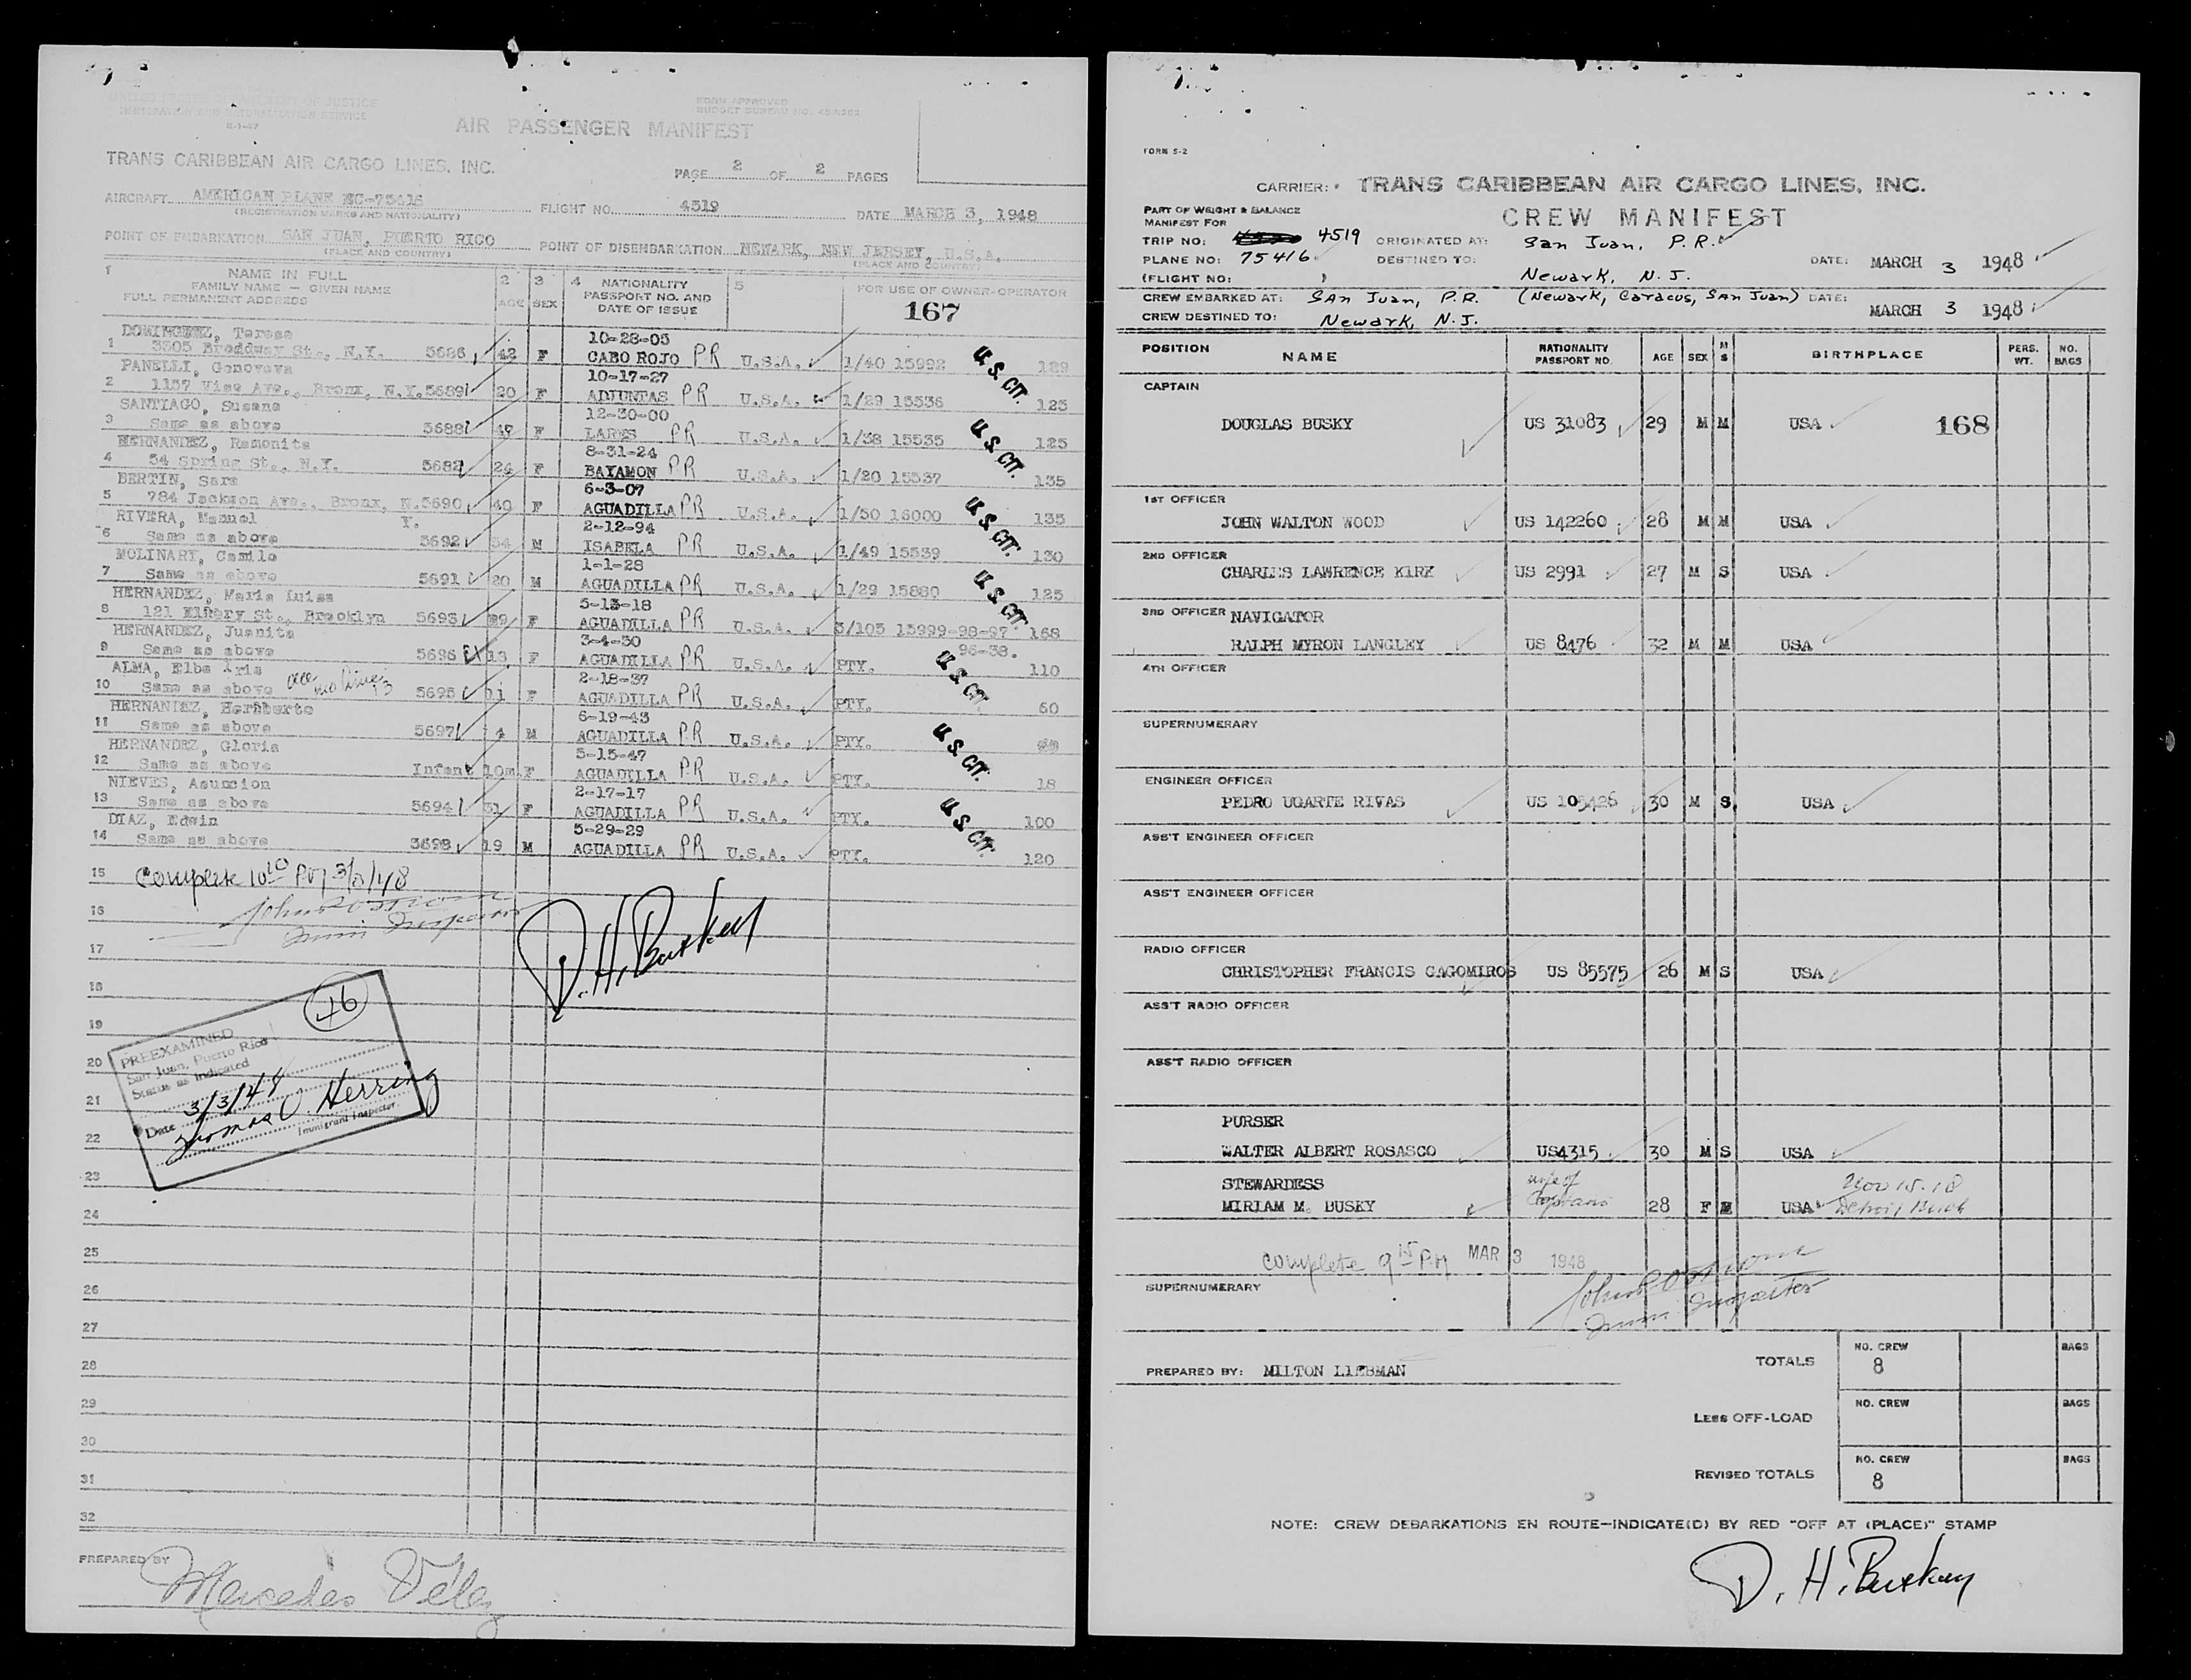 UNITED STATES DEPARTMENT OF JUSTICE
IMMIGRATION AND NATURALIZATION SERVICE
FORM APPROVED
BUDGET BUREAU NO.
AIR PASSENGER MANIFEST
TRANS CARIBBEAN AIR CARGO LINES, INC.
PAGE 2 OF 2 PAGES
AIRCRAFT AMERICAN PLANE NC-75416
(REGISTRATION MARKS AND NATIONALITY)
FLIGHT NO. 4519
DATE MARCH 3, 1948
POINT OF EMBARKATION SAN JUAN, PUERTO RICO
(PLACE AND COUNTRY)
POINT OF DISEMBARKATION NEWARK, NEW JERSEY, U.S.A.
(PLACE AND COUNTRY)
1 NAME IN FULL
FAMILY NAME — GIVEN NAME
FULL PERMANENT ADDRESS
2 AGE
3 SEX
4 NATIONALITY
PASSPORT NO. AND
DATE OF ISSUE
5
FOR USE OF OWNER-OPERATOR
167
DOMINGUEZ, Teresa 10-28-05
1 3305 Broadway St., N.Y. 5686 42 F CABO ROJO PR U.S.A. 1/40 15992 U.S. CIT. 129
PANELLI, Genoveva 10-17-27
2 1157 Vine Ave., Bronx, N.Y. 5689 20 F ADJUNTAS PR U.S.A. 1/29 15536 125
SANTIAGO, Susana 12-30-00
3 Same as above 5688 47 F LARES PR U.S.A. 1/38 15535 U.S. CIT. 125
HERNANDEZ, Ramonita 8-31-24
4 54 Spring St., N.Y. 5682 24 F BAYAMON PR U.S.A. 1/20 15537 135
BERTIN, Sara 6-3-07
5 784 Jackson Ave., Bronx, N.Y. 5690 40 F AGUADILLA PR U.S.A. 1/50 16000 U.S. CIT. 135
RIVERA, Manuel 2-12-94
6 Same as above 5692 54 M ISABELA PR U.S.A. 1/49 15539 130
MOLINARY, Camilo 1-1-28
7 Same as above 5691 20 M AGUADILLA PR U.S.A. 1/29 15880 U.S. CIT. 125
HERNANDEZ, Maria Luisa 5-13-18
8 121 Ellery St., Brooklyn 5693 29 F AGUADILLA PR U.S.A. 3/105 15999-98-97 168
96-38.
HERNANDEZ, Juanita 3-4-30
9 Same as above 5696 18 F AGUADILLA PR U.S.A. PTY. U.S. CIT. 110
ALMA, Elba Iris 2-18-37
10 Same as above 5695 11 F AGUADILLA PR U.S.A. PTY. 60
HERNANDEZ, Heriberto 6-19-43
11 Same as above 5697 4 M AGUADILLA PR U.S.A. PTY. U.S. CIT.
HERNANDEZ, Gloria 5-15-47
12 Same as above Infant 10m. F AGUADILLA PR U.S.A. PTY. 18
NIEVES, Asuncion 2-17-17
13 Same as above 5694 31 F AGUADILLA PR U.S.A. PTY. U.S. CIT. 100
DIAZ, Edwin 5-29-29
14 Same as above 3698 19 M AGUADILLA PR U.S.A. PTY. 120
15 Complete 10 10 PM 3/3/48
16
Immi Inspector
17
D. H. Buskey
18
46
19
20
PREEXAMINED
San Juan, Puerto Rico
Status as indicated
21
Date 3/3/48
Thomas O. Herring
Immigrant Inspector
22
23
24
25
26
27
28
29
30
31
32
PREPARED BY Mercedes Vélez
FORM S-2
CARRIER: TRANS CARIBBEAN AIR CARGO LINES, INC.
PART OF WEIGHT & BALANCE
MANIFEST FOR
CREW MANIFEST
TRIP NO: 4519 ORIGINATED AT: San Juan, P.R.
PLANE NO: 75416 DESTINED TO: DATE: MARCH 3 1948
(FLIGHT NO: ) Newark, N.J.
CREW EMBARKED AT: San Juan, P.R. (Newark, Caracus, San Juan) DATE: MARCH 3 1948
CREW DESTINED TO: Newark, N.J.
POSITION NAME NATIONALITY PASSPORT NO. AGE SEX M S BIRTHPLACE PERS. WT. NO. BAGS
CAPTAIN
DOUGLAS BUSKY US 31083 29 M M USA 168
1ST OFFICER
JOHN WALTON WOOD US 142260 28 M M USA
2ND OFFICER
CHARLES LAWRENCE KIRK US 2991 27 M S USA
3RD OFFICER NAVIGATOR
RALPH MYRON LANGLEY US 8476 32 M M USA
4TH OFFICER
SUPERNUMERARY
ENGINEER OFFICER
PEDRO UGARTE RIVAS US 105426 30 M S USA
ASS'T ENGINEER OFFICER
ASS'T ENGINEER OFFICER
RADIO OFFICER
CHRISTOPHER FRANCIS CAGOMIROS US 85575 26 M S USA
ASS'T RADIO OFFICER
ASS'T RADIO OFFICER
PURSER
WALTER ALBERT ROSASCO US4315 30 M S USA
STEWARDESS wife of Nov 15.18
MIRIAM M. BUSKY Captain 28 F M USA Detroit Mich
Complete 9 15 PM MAR 3 1948
SUPERNUMERARY
Immi Inspector
PREPARED BY: MILTON LIEBMAN
TOTALS NO. CREW 8 BAGS
LESS OFF-LOAD NO. CREW BAGS
REVISED TOTALS NO. CREW 8 BAGS
NOTE: CREW DEBARKATIONS EN ROUTE—INDICATE(D) BY RED "OFF AT (PLACE)" STAMP
D. H. Buskey